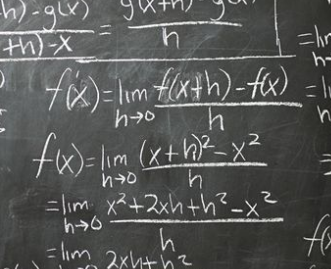 h)-g(x) / (x+h)-x = g(x+h)-g(x) / h
f'(x)=lim h→0 f(x+h)-f(x) / h
f(x)=lim h→0 (x+h)²-x² / h
=lim h→0 x²+2xh+h²-x² / h
=lim 2xh+h²